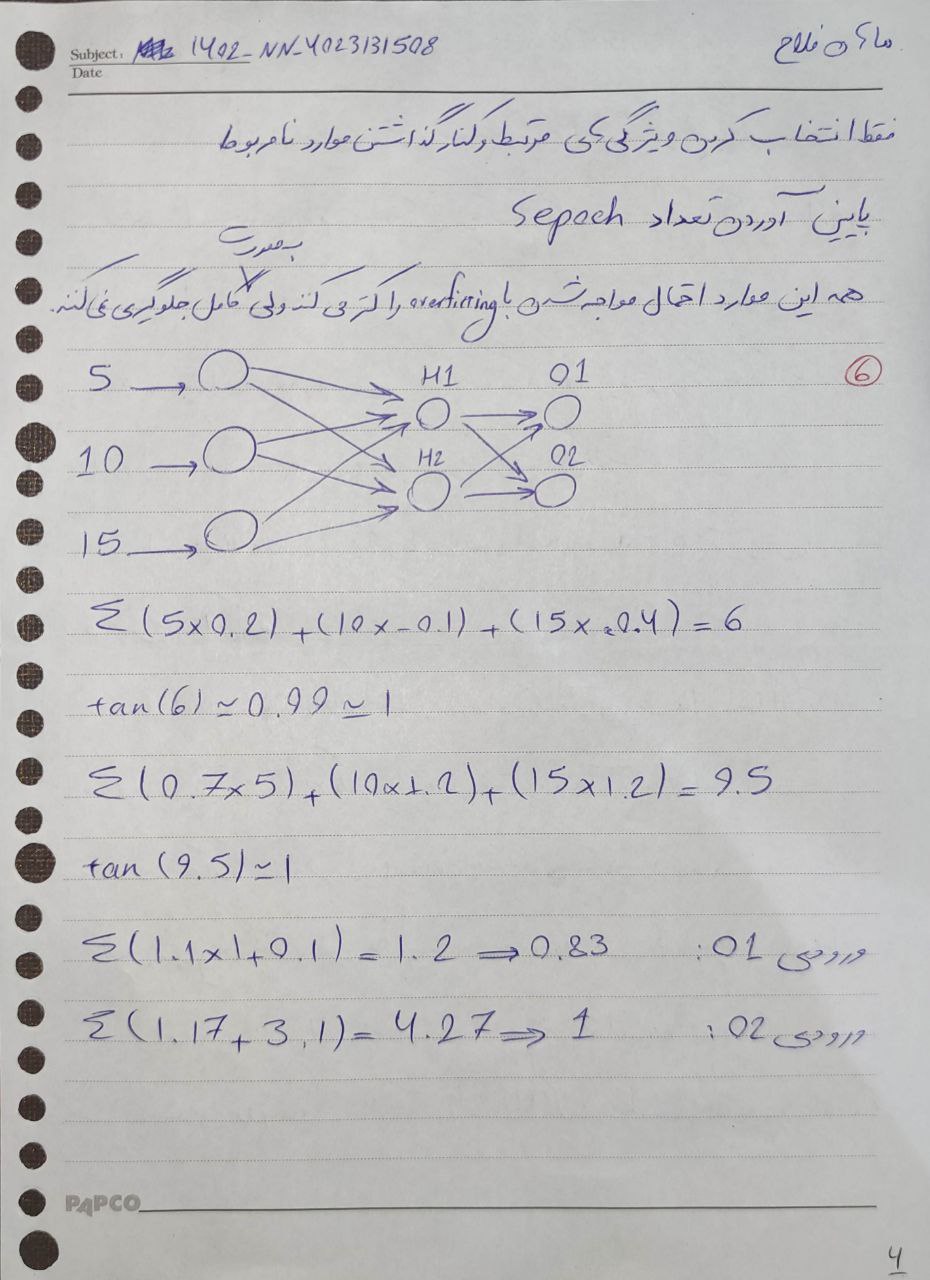 Subject: 1402-NN-4023131508
Date
فلاح
فقط انتخاب کردن ویژگی های مرتبط و کنار گذاشتن موارد نامربوط
پایین آوردن تعداد epoch
بصورت
همه این موارد احتمال مواجه شدن با overfitting را کمتر می کند ولی کامل جلوگیری نمی کند.
6
5 H1 O1
10 H2 O2
15
Σ (5x0.2) + (10x-0.1) + (15x0.4) = 6
tan(6) ≃ 0.99 ≃ 1
Σ (0.7x5) + (10x1.2) + (15x1.2) = 9.5
tan (9.5) ≃ 1
Σ (1.1x1+0.1) = 1.2 ⇒ 0.83 ورودی O1 :
Σ (1.17+3.1) = 4.27 ⇒ 1 ورودی O2 :
PAPCO
4